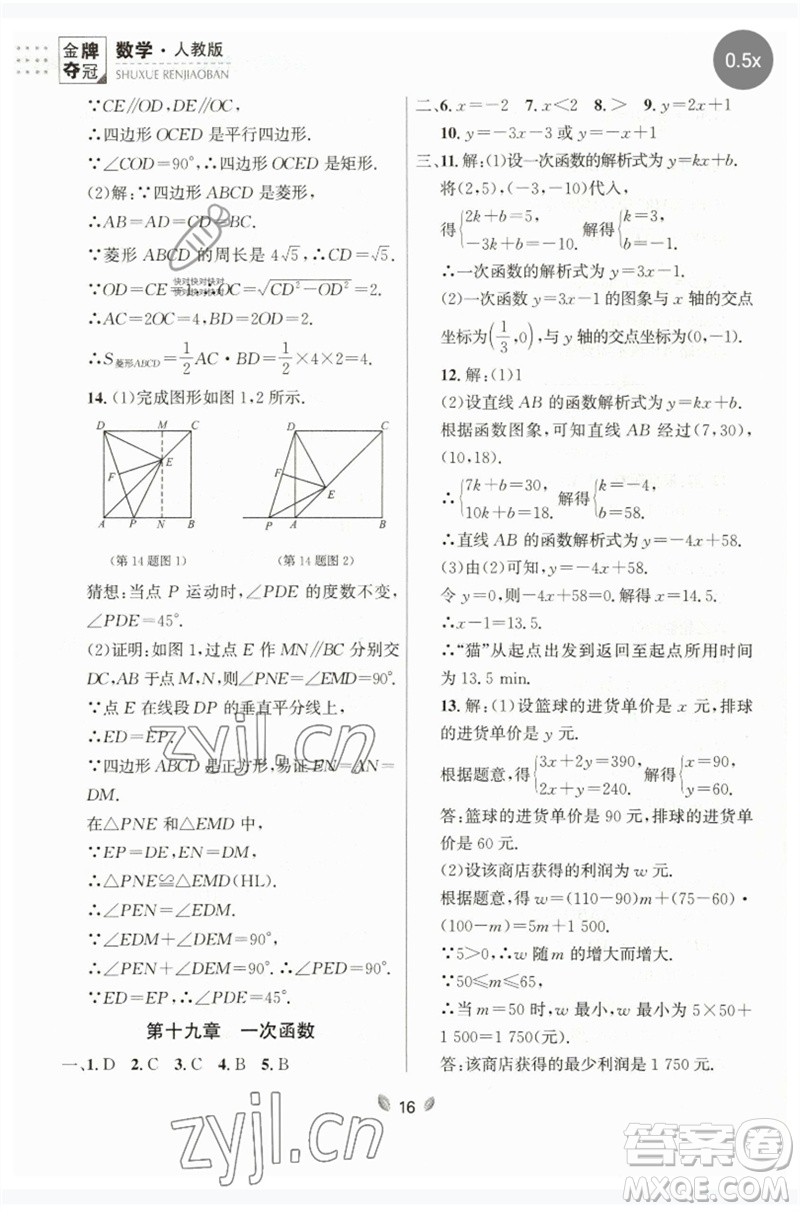 金牌
夺冠
数学·人教版
SHUXUE RENJIAOBAN
0.5x
∵CE∥OD,DE∥OC,
∴四边形 OCED 是平行四边形.
∵∠COD=90°,∴四边形 OCED 是矩形.
(2)解:∵四边形 ABCD 是菱形,
∴AB=AD=CD=BC.
∵菱形 ABCD 的周长是 4√5,∴CD=√5.
∵OD=CE=1,∴OC=√(CD²-OD²)=2.
快对快对快对
快对快对快对
∴AC=2OC=4,BD=2.
∴S菱形ABCD=1/2 AC·BD=1/2×4×2=4.
14. (1)完成图形如图 1,2 所示.
D M C
F E
A P N B
(第 14 题图 1)
D C
F E
P A B
(第 14 题图 2)
猜想:当点 P 运动时,∠PDE 的度数不变,
∠PDE=45°.
(2)证明:如图 1,过点 E 作 MN∥BC 分别交
DC,AB 于点 M,N,∠PNE=∠EMD=90°.
∵点 E 在线段 DP 的垂直平分线上,
∴ED=EP.
∵四边形 ABCD 是正方形,易证EN=AN=
DM.
在△PNE 和△EMD 中,
∵EP=DE,EN=DM,
∴△PNE≌△EMD(HL).
∴∠PEN=∠EDM.
∵∠EDM+∠DEM=90°,
∴∠PEN+∠DEM=90°.∴∠PED=90°.
∵ED=EP,∴∠PDE=45°.
第十九章 一次函数
一、1. D 2. C 3. C 4. B 5. B
二、6. x=-2 7. x<2 8. > 9. y=2x+1
10. y=-3x-3 或 y=-x+1
三、11. 解:(1)设一次函数的解析式为 y=kx+b.
将(2,5),(-3,-10)代入,
得{2k+b=5, -3k+b=-10. 解得{k=3, b=-1.
∴一次函数的解析式为 y=3x-1.
(2)一次函数 y=3x-1 的图象与 x 轴的交点
坐标为(1/3,0),与 y 轴的交点坐标为(0,-1).
12. 解:(1)1
(2)设直线 AB 的函数解析式为 y=kx+b.
根据函数图象,可知直线 AB 经过(7,30),
(10,18).
∴{7k+b=30, 10k+b=18. 解得{k=-4, b=58.
∴直线 AB 的函数解析式为 y=-4x+58.
(3)由(2)可知,y=-4x+58.
令 y=0,则-4x+58=0.解得 x=14.5.
∴x-1=13.5.
∴“猫”从起点出发到返回至起点所用时间
为 13.5 min.
13. 解:(1)设篮球的进货单价是 x 元,排球
的进货单价是 y 元.
根据题意,得{3x+2y=390, 2x+y=240. 解得{x=90, y=60.
答:篮球的进货单价是 90 元,排球的进货单
价是 60 元.
(2)设该商店获得的利润为 w 元.
根据题意,得 w=(110-90)m+(75-60)·
(100-m)=5m+1 500.
∵5>0,∴w 随 m 的增大而增大.
∵50≤m≤65,
∴当 m=50 时,w 最小,w 最小为 5×50+
1 500=1 750(元).
答:该商店获得的最少利润是 1 750 元.
16
zyjl.cn
zyjl.cn
答案卷
MXQE.COM